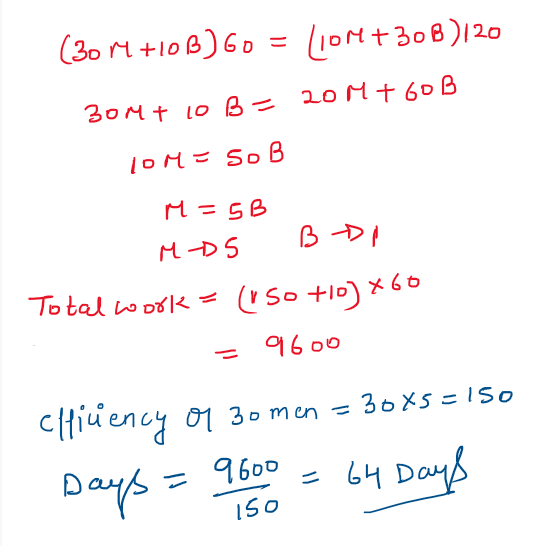 (30M+10B)60 = (10M+30B)120
30M+ 10 B = 20M+ 60B
10M = 50B
M = 5B
M→5 B→1
Total work = (150+10)×60
= 9600
efficiency of 30 men = 30×5=150
Days = 9600/150 = 64 Days